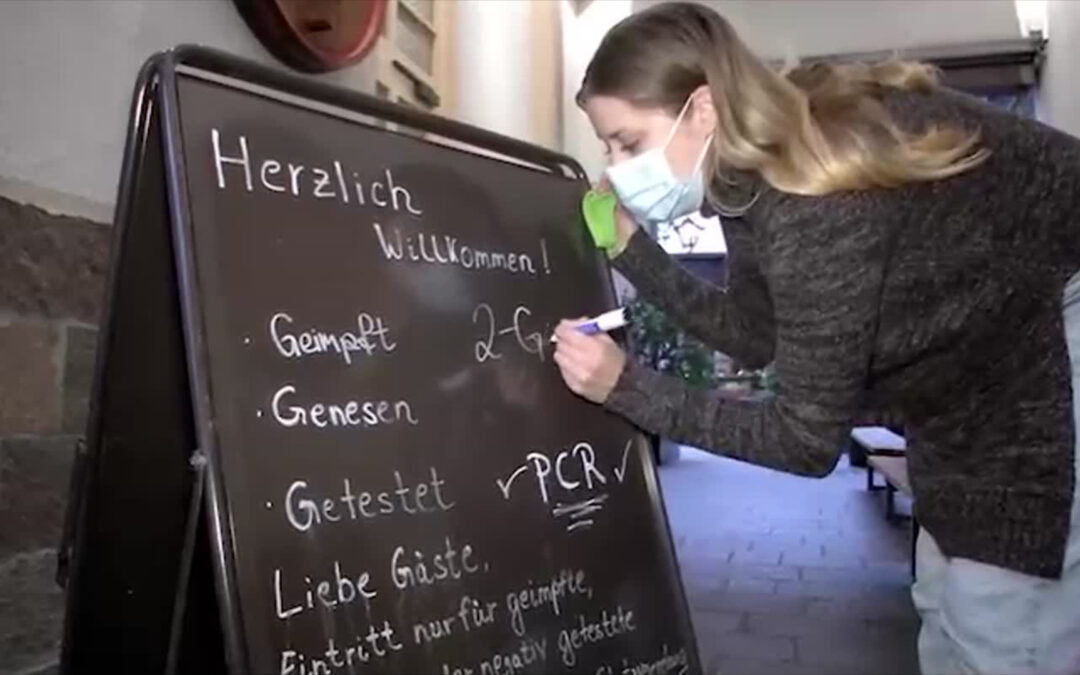 Herzlich
Willkommen!
· Geimpft 2-G
· Genesen
· Getestet ✓PCR✓
Liebe Gäste,
Eintritt nur für geimpfte,
negativ getestete